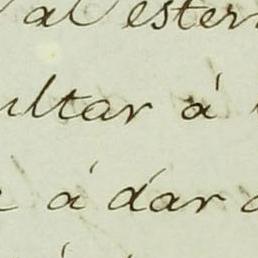 al estern
ultar á
á dar